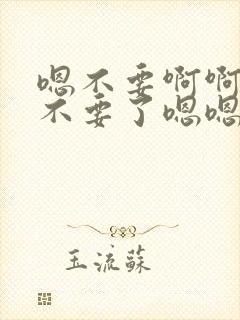 嗯不要啊啊
不要了嗯嗯
玉流蘇